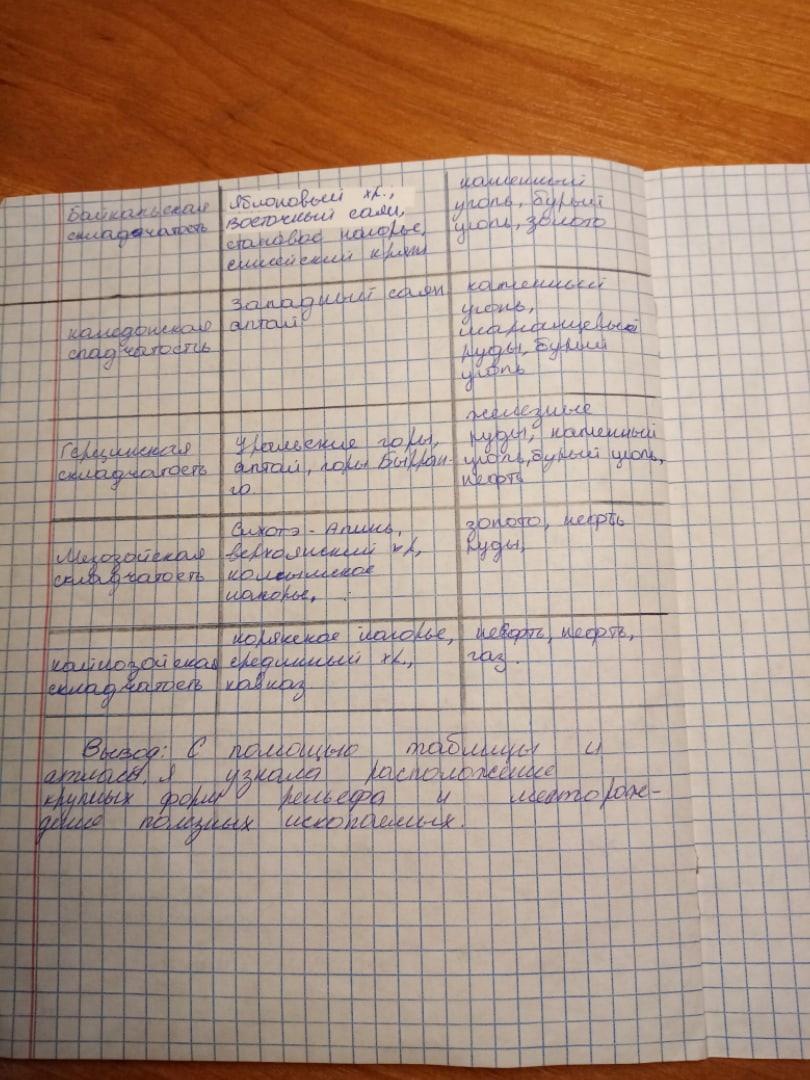 Байкальская
складчатость
Яблоновый хр.,
Восточный саян,
становое нагорье,
енисейский кряж
каменный
уголь, бурый
уголь, золото
каледонская
спадчатость
Западный саян
алтай
каменный
уголь,
марганцевые
руды, бурый
уголь
Герцинская
складчатость
Уральские горы,
алтай, горы Бырран-
го.
железные
руды, каменный
уголь, бурый уголь,
нефть
Мезозойская
складчатость
Сихотэ-Алинь,
верхоянский хр,
колымское
нагорье,
золото, нефть
руды,
кайнозойская
складчатость
корякское нагорье,
срединный хр.,
кавказ
нефть, нефть,
газ.
Вывод: С помощью таблицы и
атласа, я узнала расположение
крупных форм рельефа и месторож-
дение полезных ископаемых.